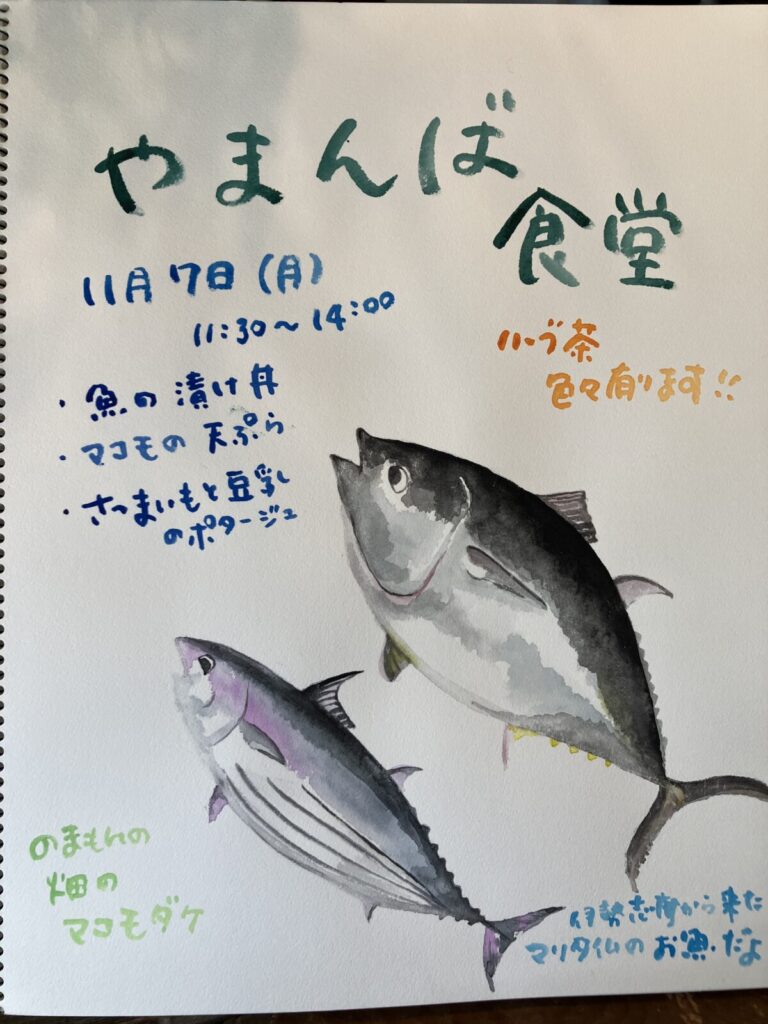 やまんば
食堂
11月7日(月)
11:30〜14:00
ハーブ茶
色々有ります!!
・魚の漬け丼
・マコモの天ぷら
・さつまいもと豆乳
のポタージュ
のまもんの
畑の
マコモダケ
伊勢志摩から来た
マリタイムのお魚だよ